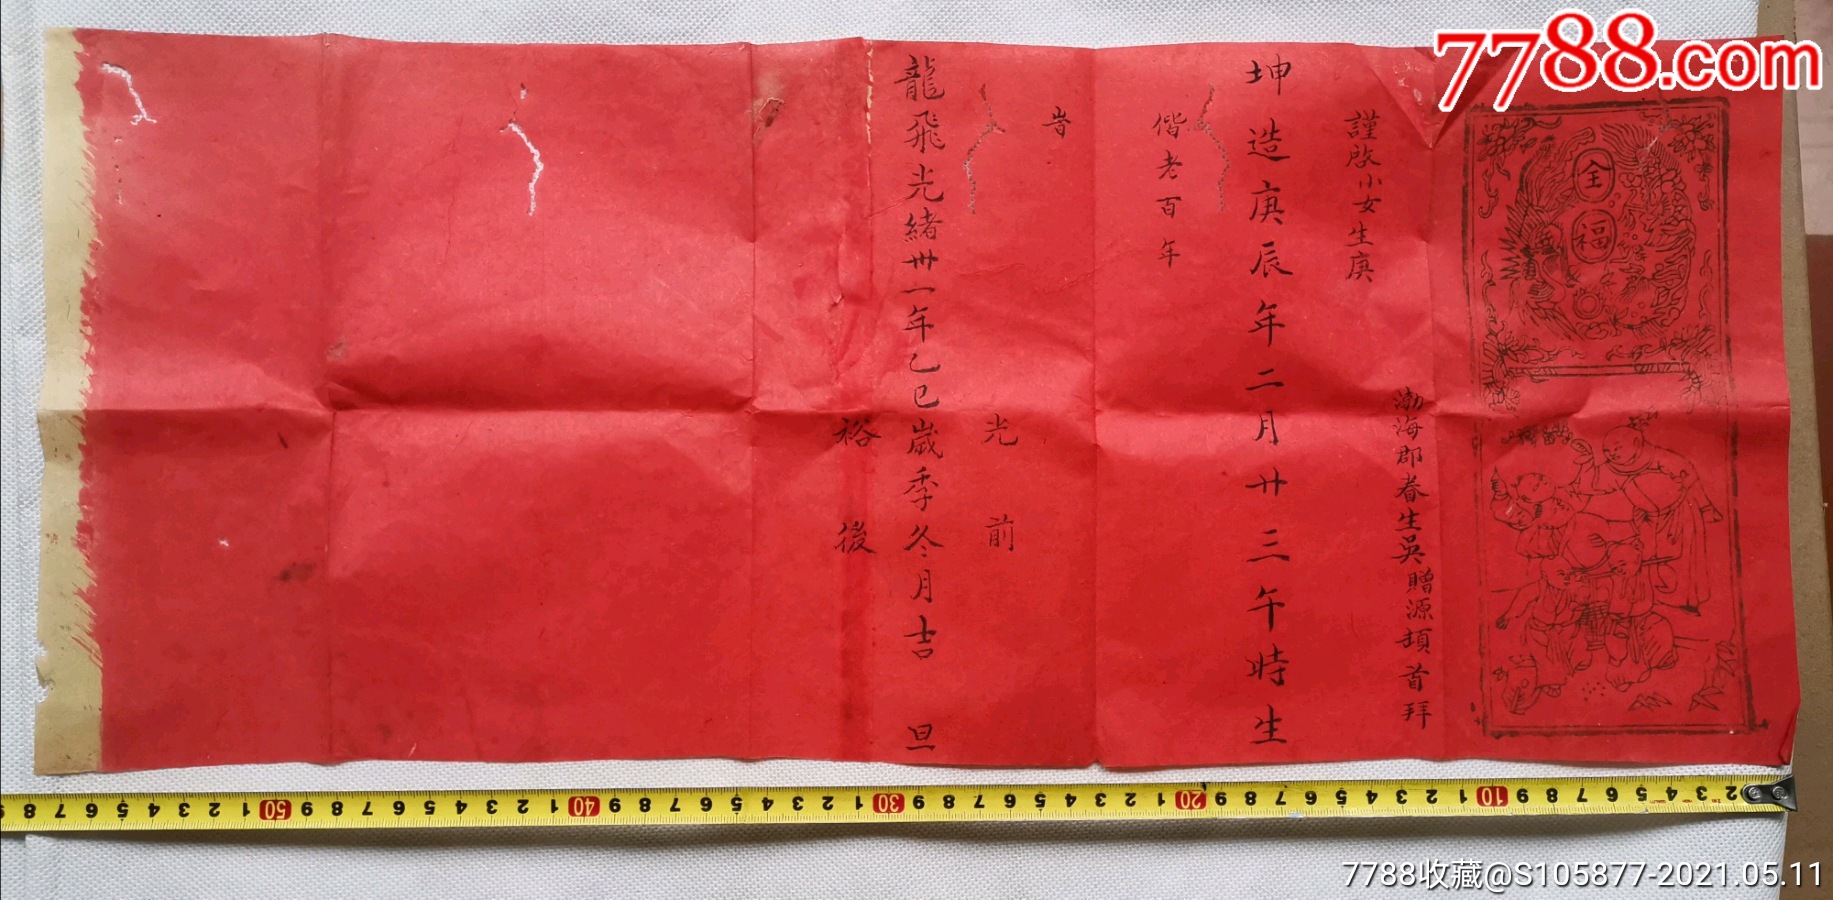 7788.com
全福
謹啟小女生庚
渤海郡眷生吳贈源頓首拜
坤造庚辰年二月廿三午時生
偕老百年
旹
光前
龍飛光緒卅一年乙巳歲季冬月吉旦
裕後
7788收藏@S105877-2021.05.11